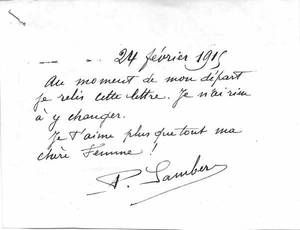 24 février 1915
Au moment de mon départ
je relis cette lettre. Je n'ai rien
à y changer.
Je t'aime plus que tout ma
chère Femme !
P. Lambert